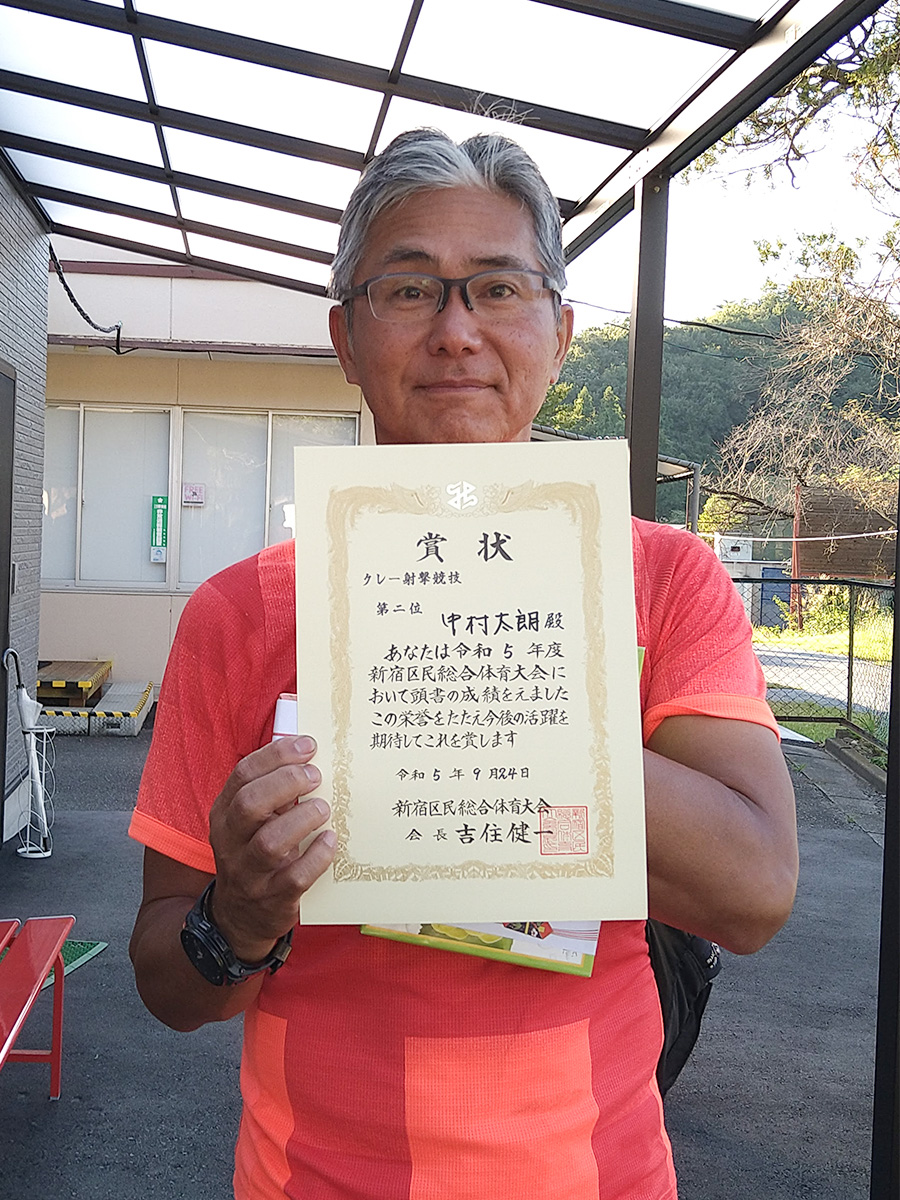 賞状
クレー射撃競技
第二位 中村太朗殿
あなたは令和5年度
新宿区民総合体育大会に
おいて頭書の成績をえました
この栄誉をたたえ今後の活躍を
期待してこれを賞します
令和5年9月24日
新宿区民総合体育大会
会長 吉住健一
FREE